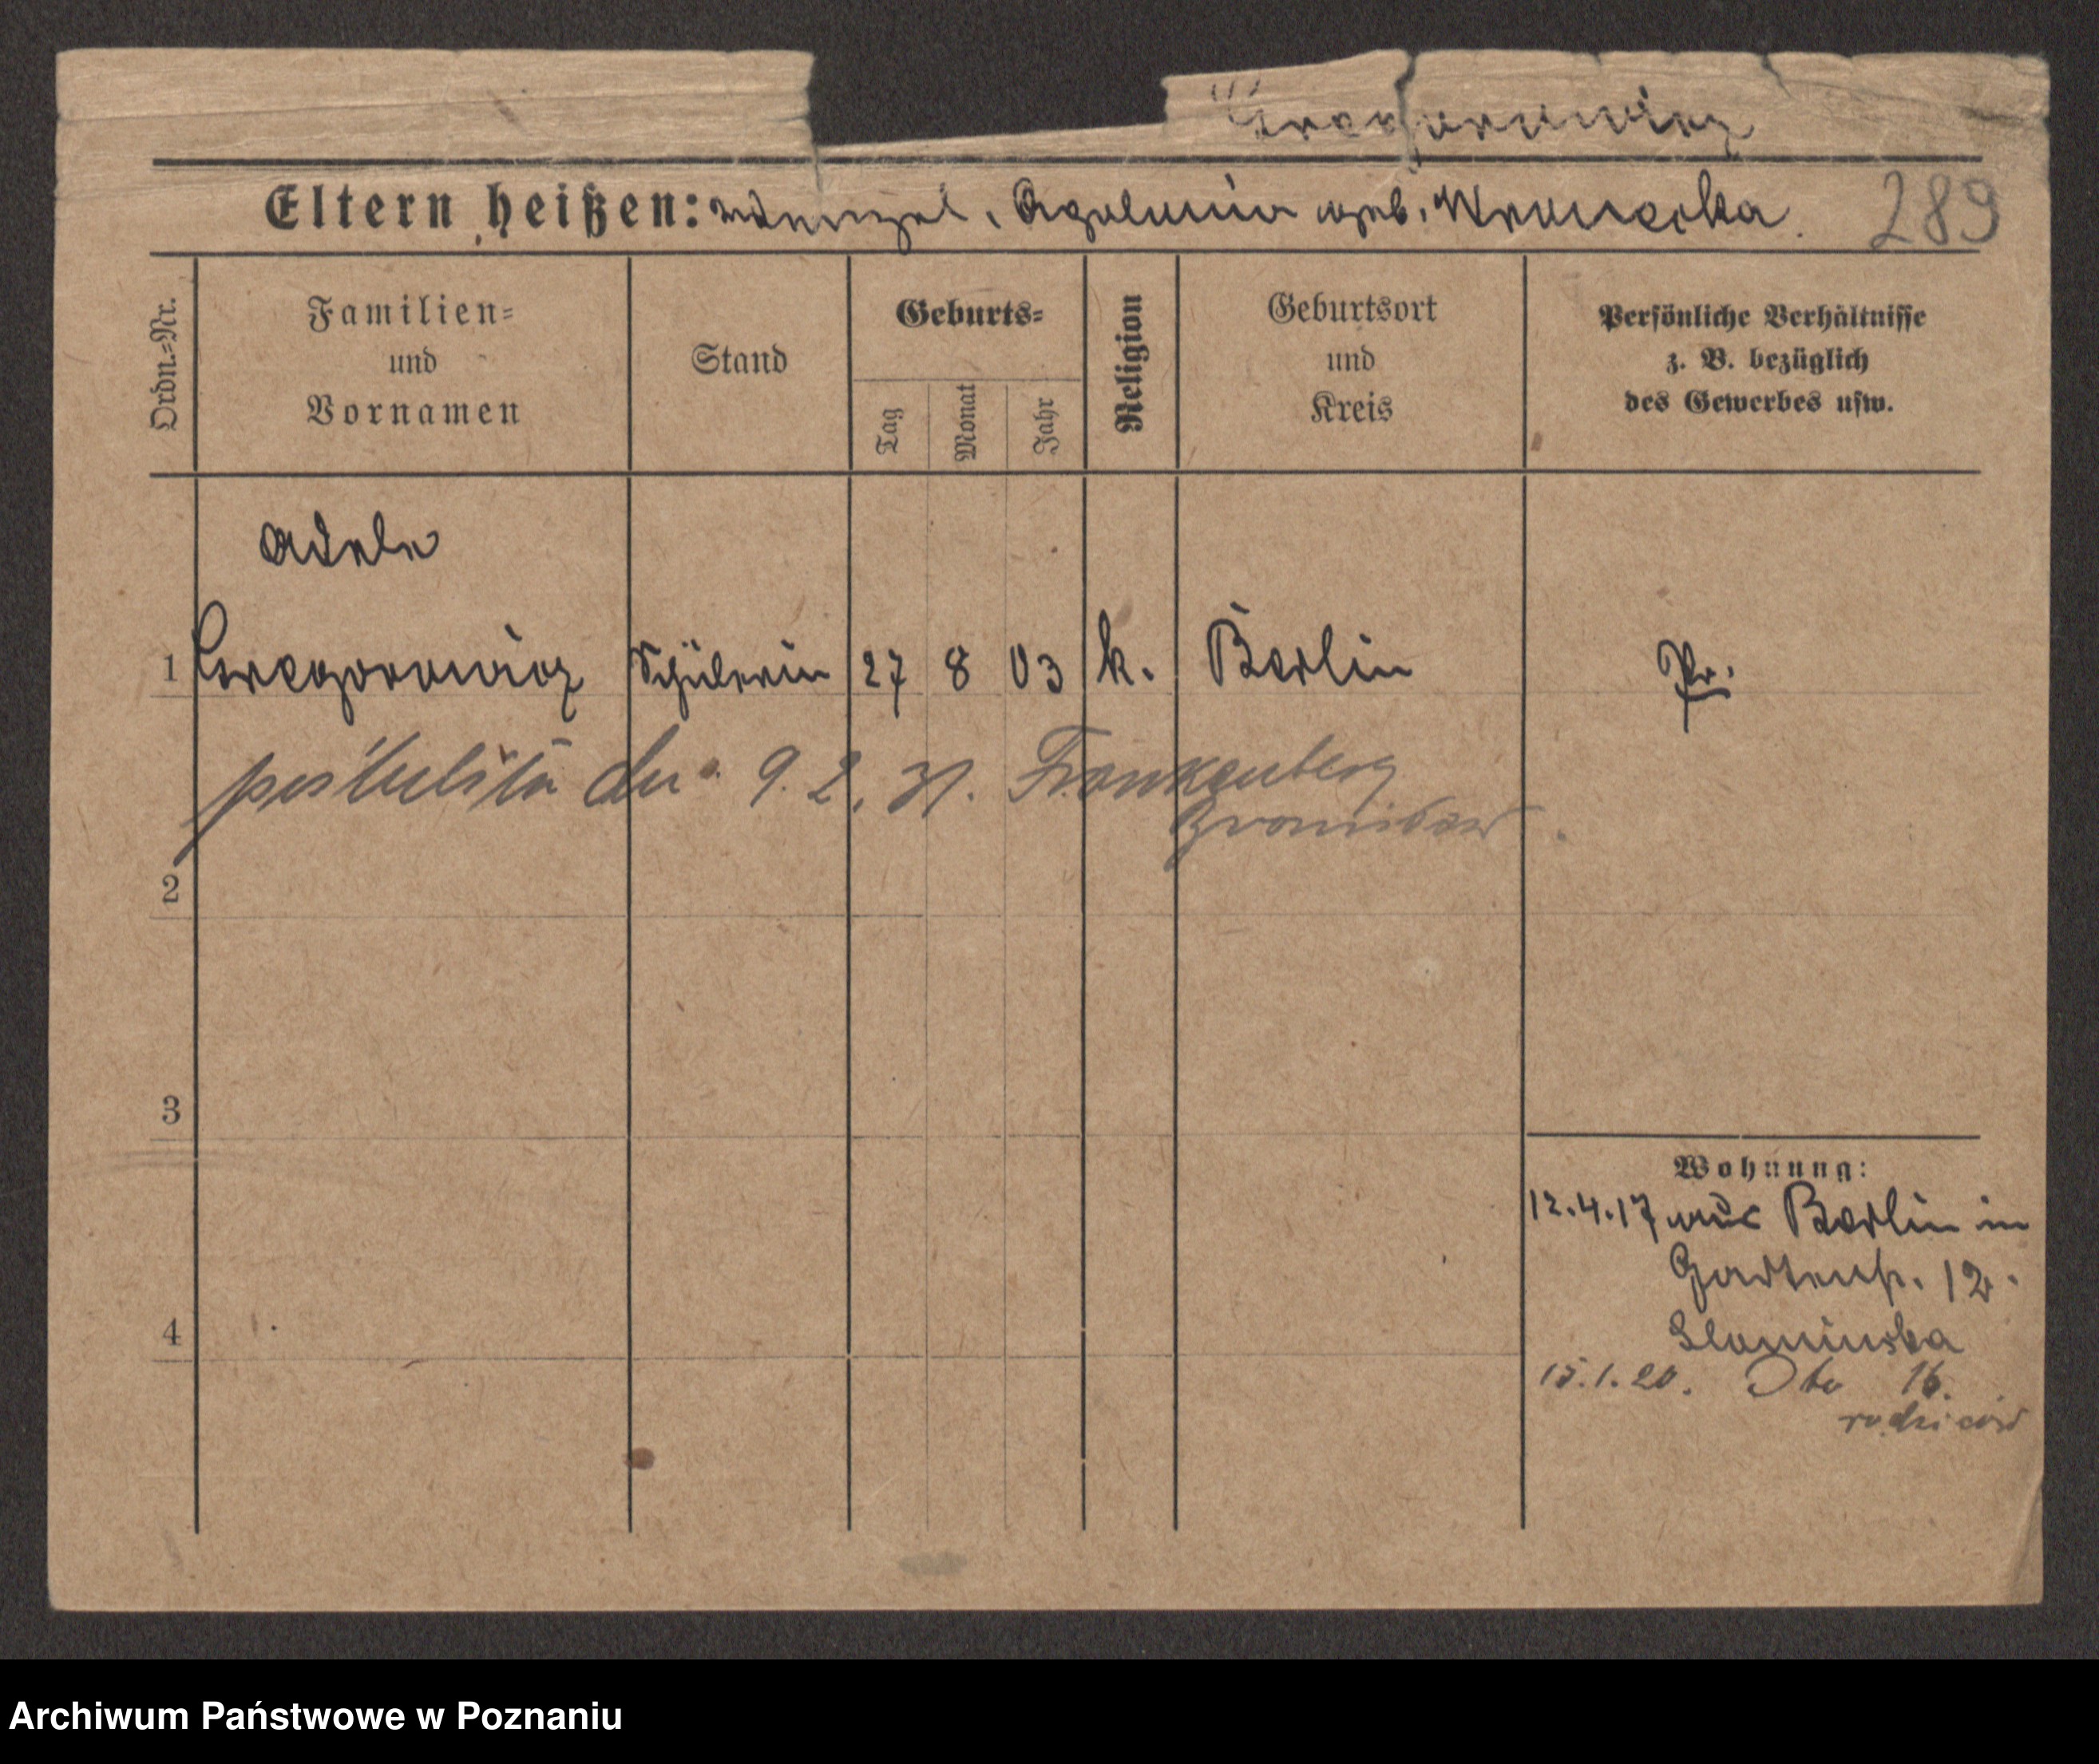 Gregorowicz
Eltern heißen: Apolonia geb. 289
Ordn.=Nr.
Familien=
und
Vornamen
Stand
Geburts=
Tag
Monat
Jahr
Religion
Geburtsort
und
Kreis
Persönliche Verhältnisse
z. B. bezüglich
des Gewerbes usw.
Adele
1 Gregorowicz Schülerin 27 8 03 k. Berlin Pr.
9. 2. 31. Frankenberg
Bronisław
2
3
Wohnung:
12.4.17 aus Berlin in
Gartenstr. 12.
4
Slominska
15.1.20. 16.
rodziców
Archiwum Państwowe w Poznaniu